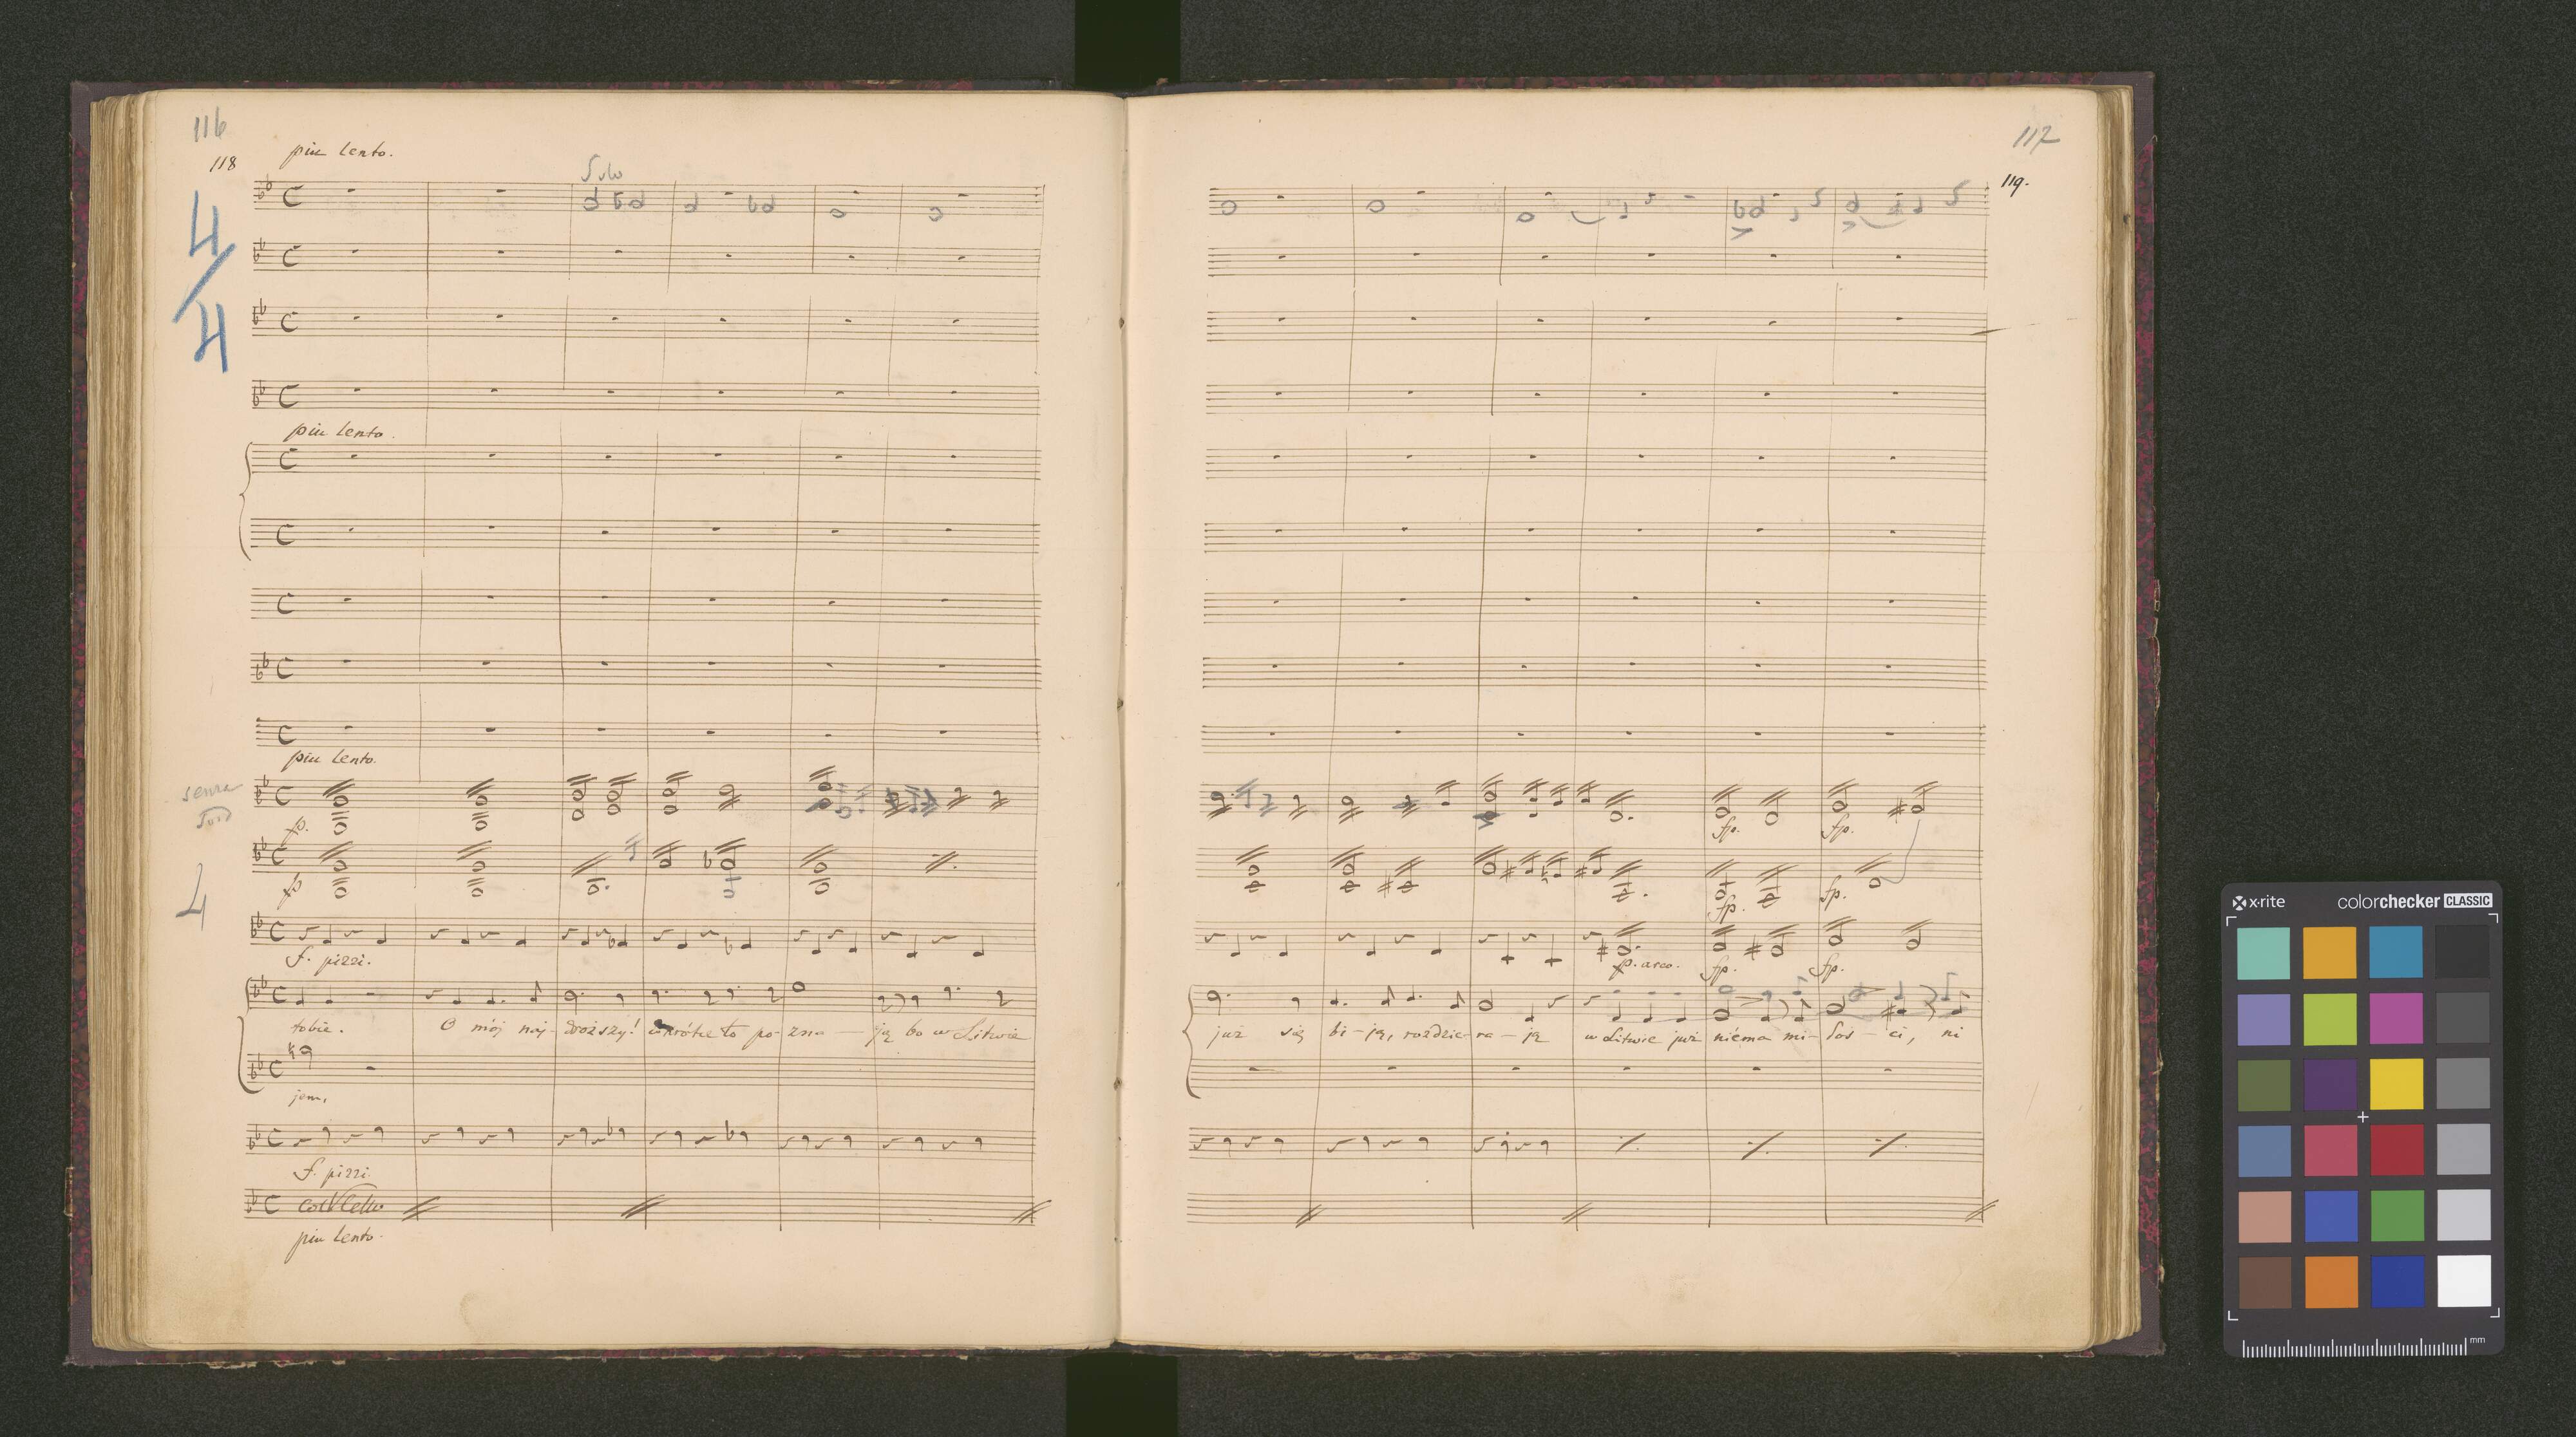 116
118
piu Lento.
Solo
4/4
piu Lento.
piu Lento.
senza
fp.
4
p
f. pizzi.
tobie. O mój naj- droższy! wkrótce to po- zna — ją bo w Litwie
jem,
f. pizzi.
Col Vcello
piu Lento.
117
119.
fp. fp.
fp. fp.
p. arco. fp. fp.
już się bi - ją, rozdzie- ra - ją w Litwie już niéma mi- łoś - ci, ni
x-rite colorchecker CLASSIC
mm